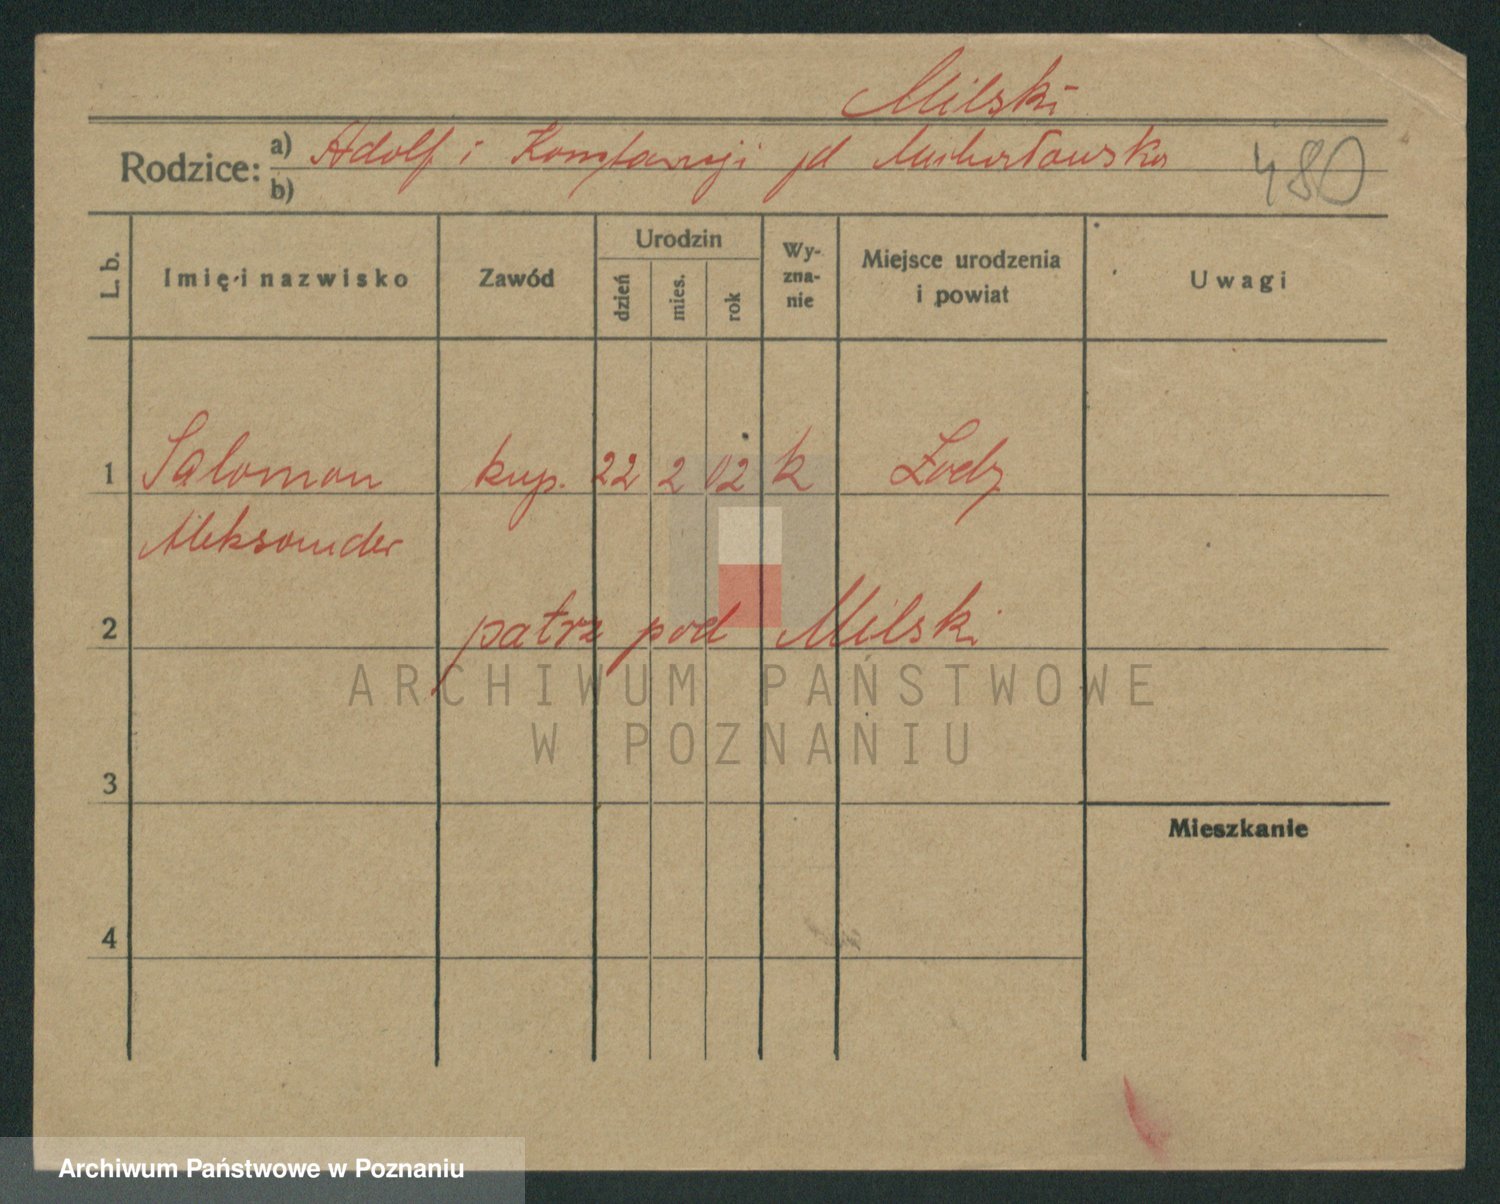 Milski
Rodzice: a) Adolf i Konstancji
b)
480
L. b. Imię i nazwisko Zawód Urodzin dzień mies. rok Wy-zna-nie Miejsce urodzenia i powiat Uwagi
1 Salomon kup. 22 2 02 k Łodz
Aleksander
2 patrz pod Milski
ARCHIWUM PAŃSTWOWE
W POZNANIU
3
Mieszkanie
4
Archiwum Państwowe w Poznaniu